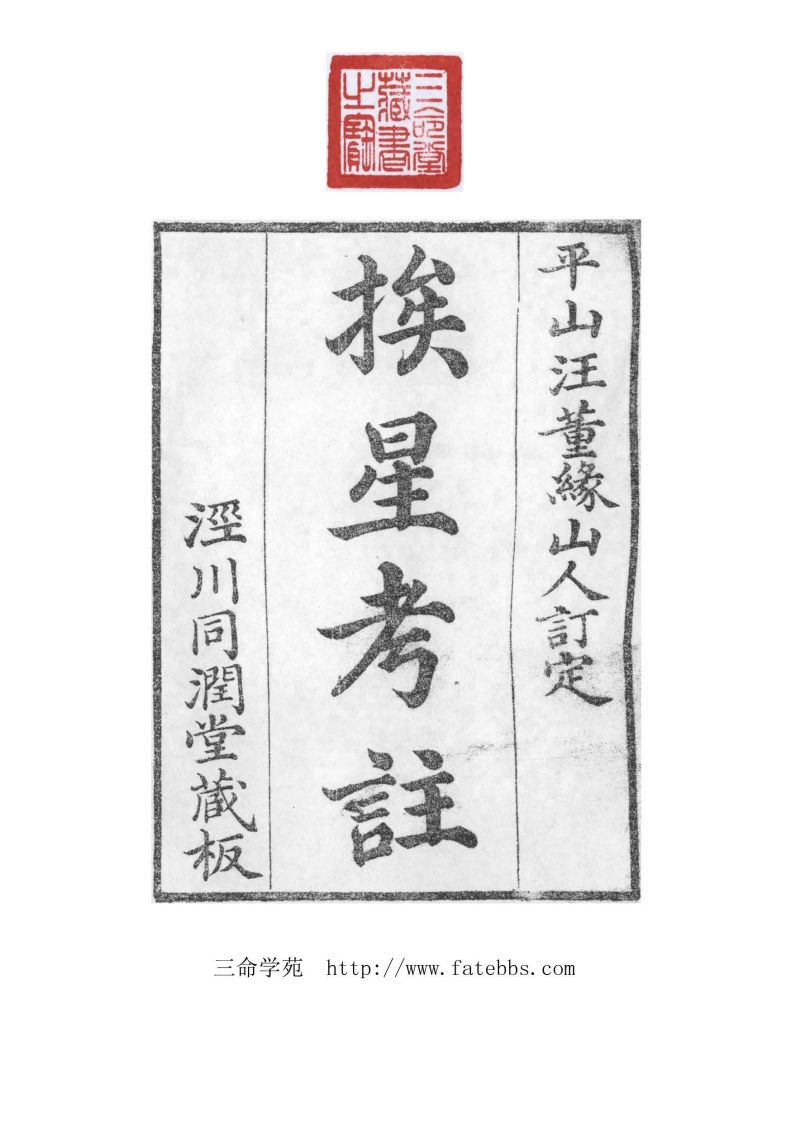 三命堂
藏書
之寶
平山汪董緣山人訂定
挨星考註
涇川同潤堂藏板
三命学苑 http://www.fatebbs.com